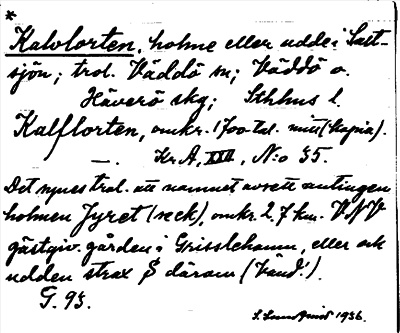 *
Kalvlorten, holme eller udde i Salt-
sjön; trol. Väddö sn; Väddö o.
Häverö skg; Sthhus l.
Kalflorten, omkr. 1700-tal. mitt (kopia).
—. Kr. A, XXX, N:o 35.
Det synes trol. att namnet avsett antingen
holmen Fyret (veck), omkr. 2,7 km. VNV
gästgiv.gården i Grisslehamn, eller ock
udden strax S därom (Länd.).
G. 93.
S. Lundqvist 1936.